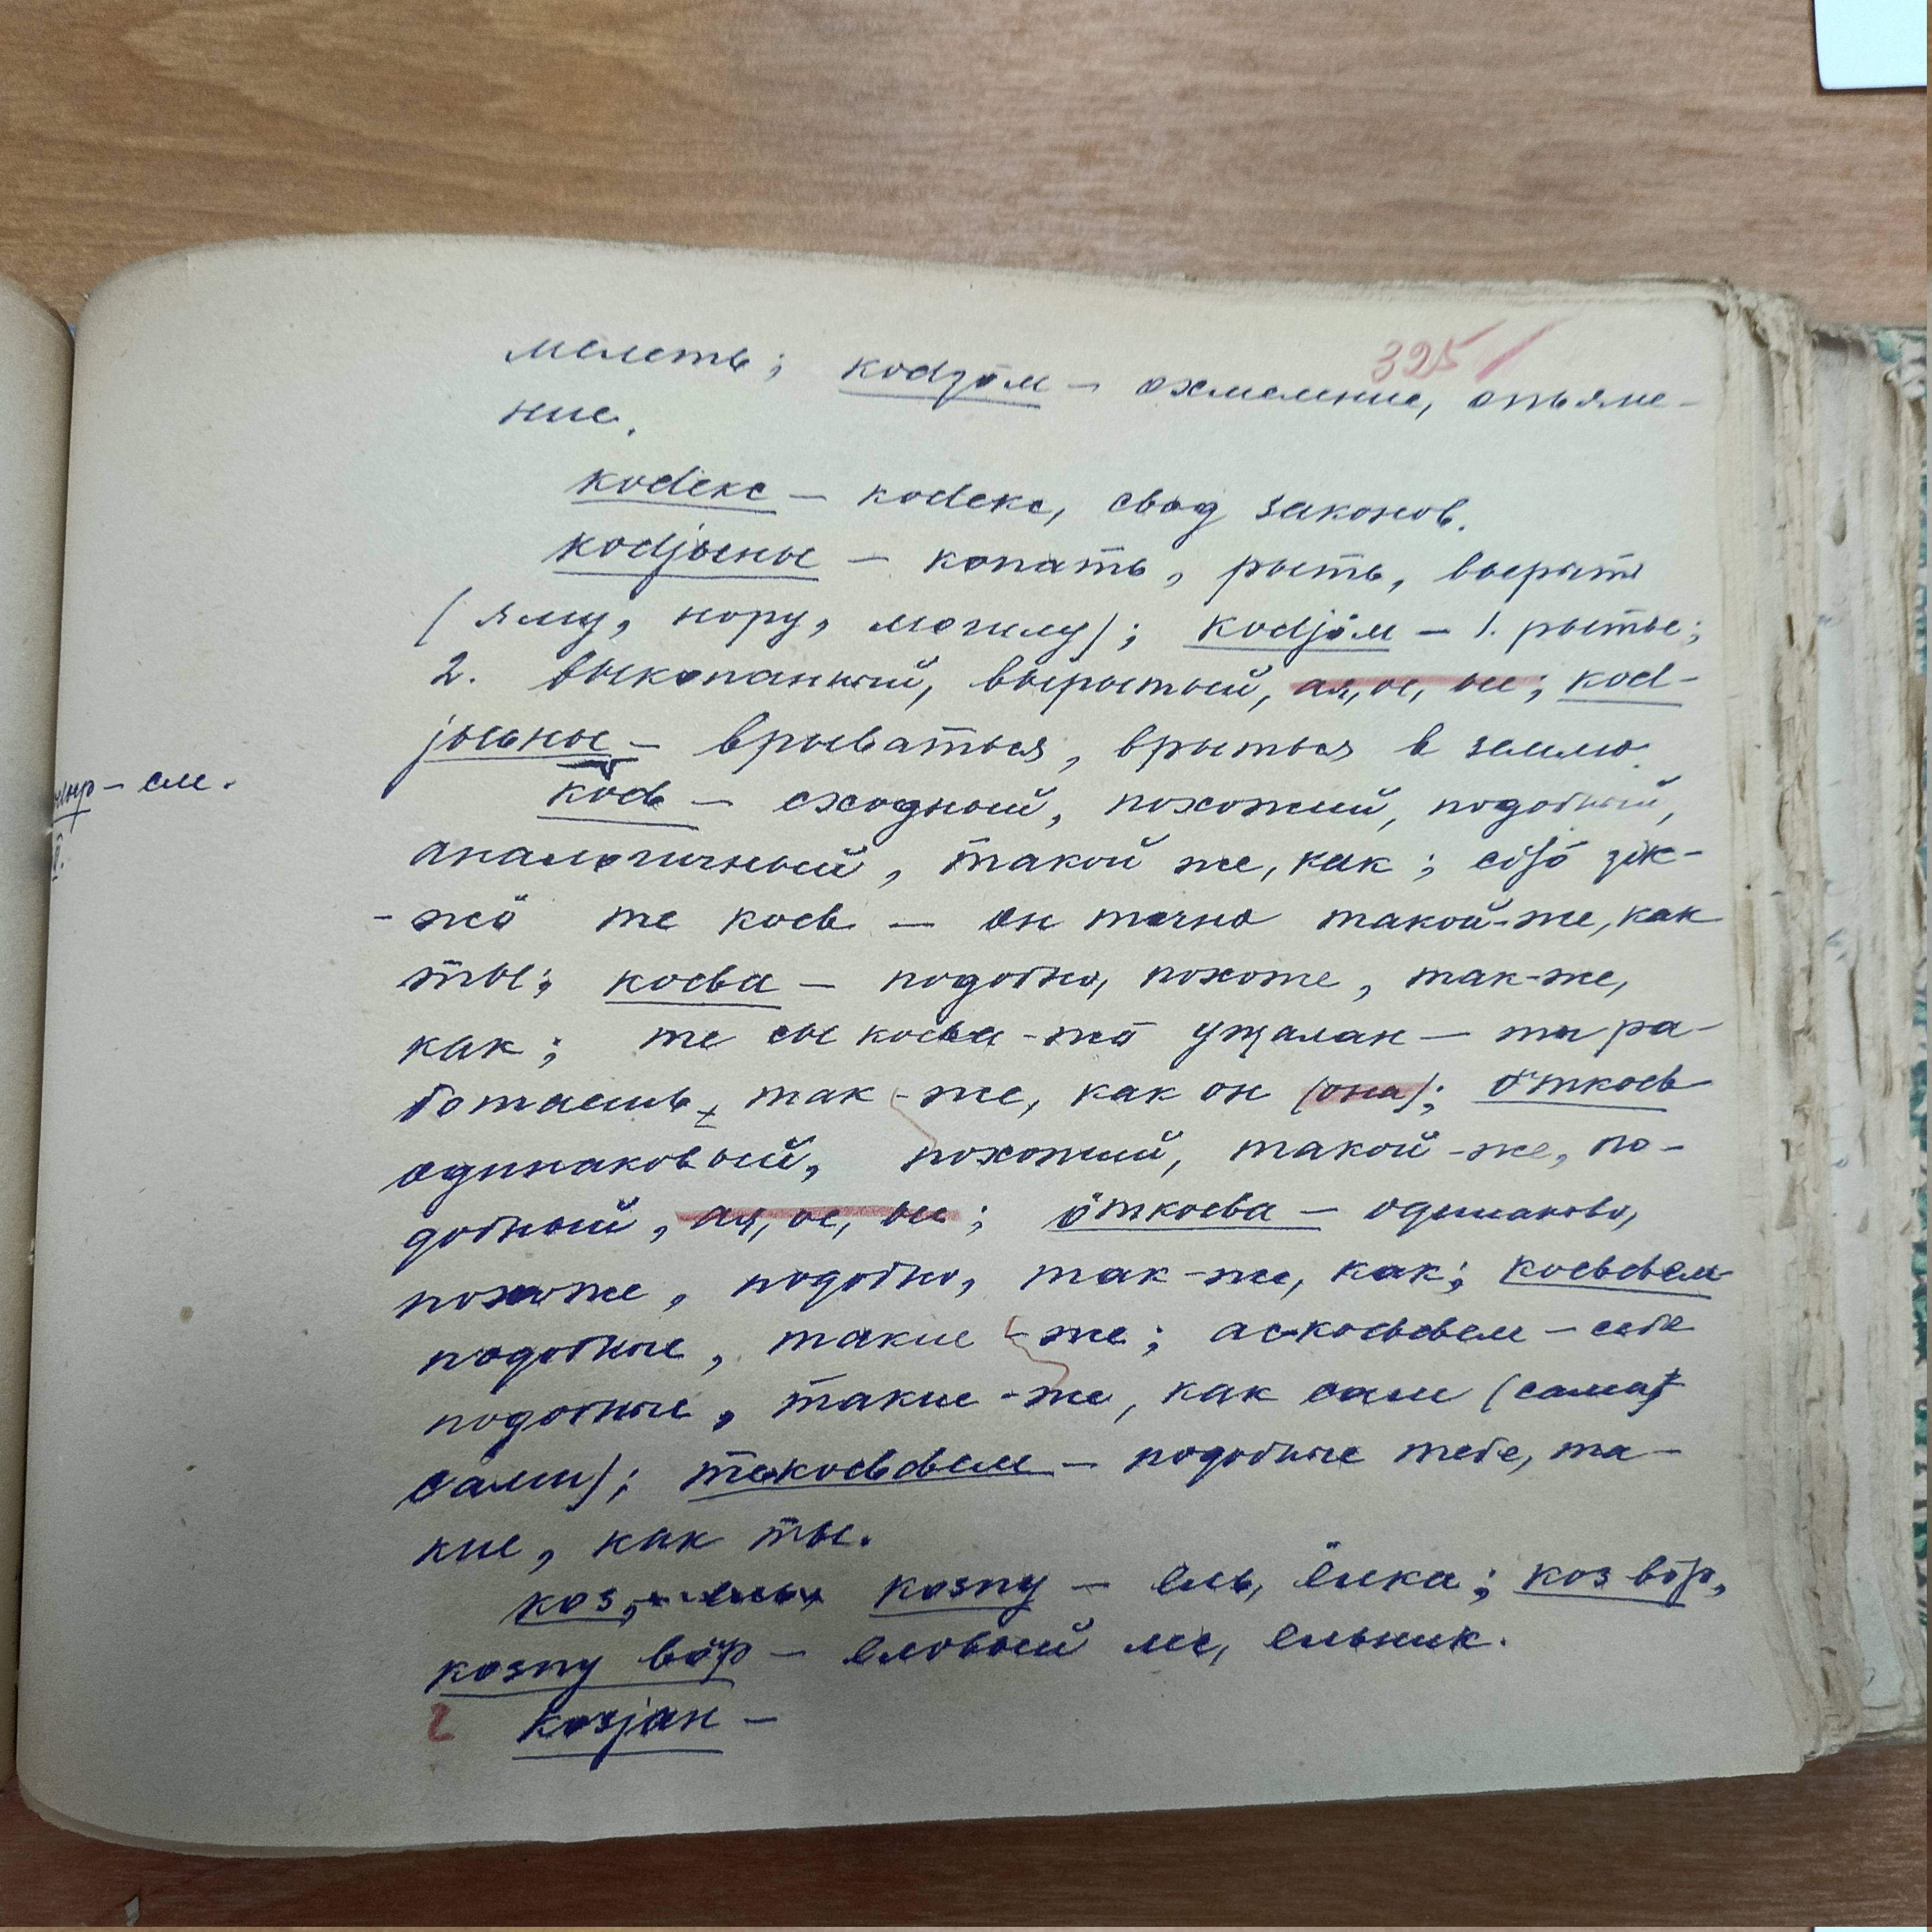 395
мелеть; kodzöм – охмеление, опьяне-
ние.
кodекс – кodекс, свод законов.
кodjыны – копать, рыть, вырыть
(яму, нору, могилу); кodjöм – 1. рытье;
2. выкопанный, вырытый, ая, ое, ые; кod-
jыьны – врываться, врыться в землю.
– см.
кodь – сходный, похожий, подобный,
аналогичный, такой же, как; сijö зiк-
-жö те кodь – он точно такой-же, как
ты; кodьа – подобно, похоже, так-же,
как; те сы кodьа-жö уҗалан – ты ра-
ботаешь, так-же, как он (она); öткodь
одинаковый, похожий, такой-же, по-
добный, ая, ое, ые; öткodьа – одинаково,
похоже, подобно, так-же, как;
подобные, такие-же; – себе
подобные, такие-же, как сам (сама,
сами); – подобные тебе, та-
кие, как ты.
коз, козпу – ель, ёлка; коз вöр,
козпу вöр – еловый лес, ельник.
2 козjан –